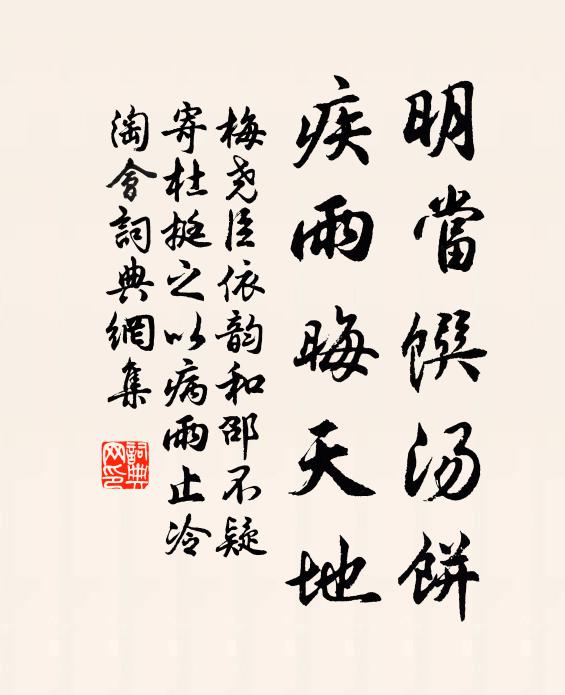 明當饌汤餅
疾雨晦天地
梅堯臣依韵和邵不疑
寄杜挺之以病雨止冷
淘會詞典網集
詞典
网印